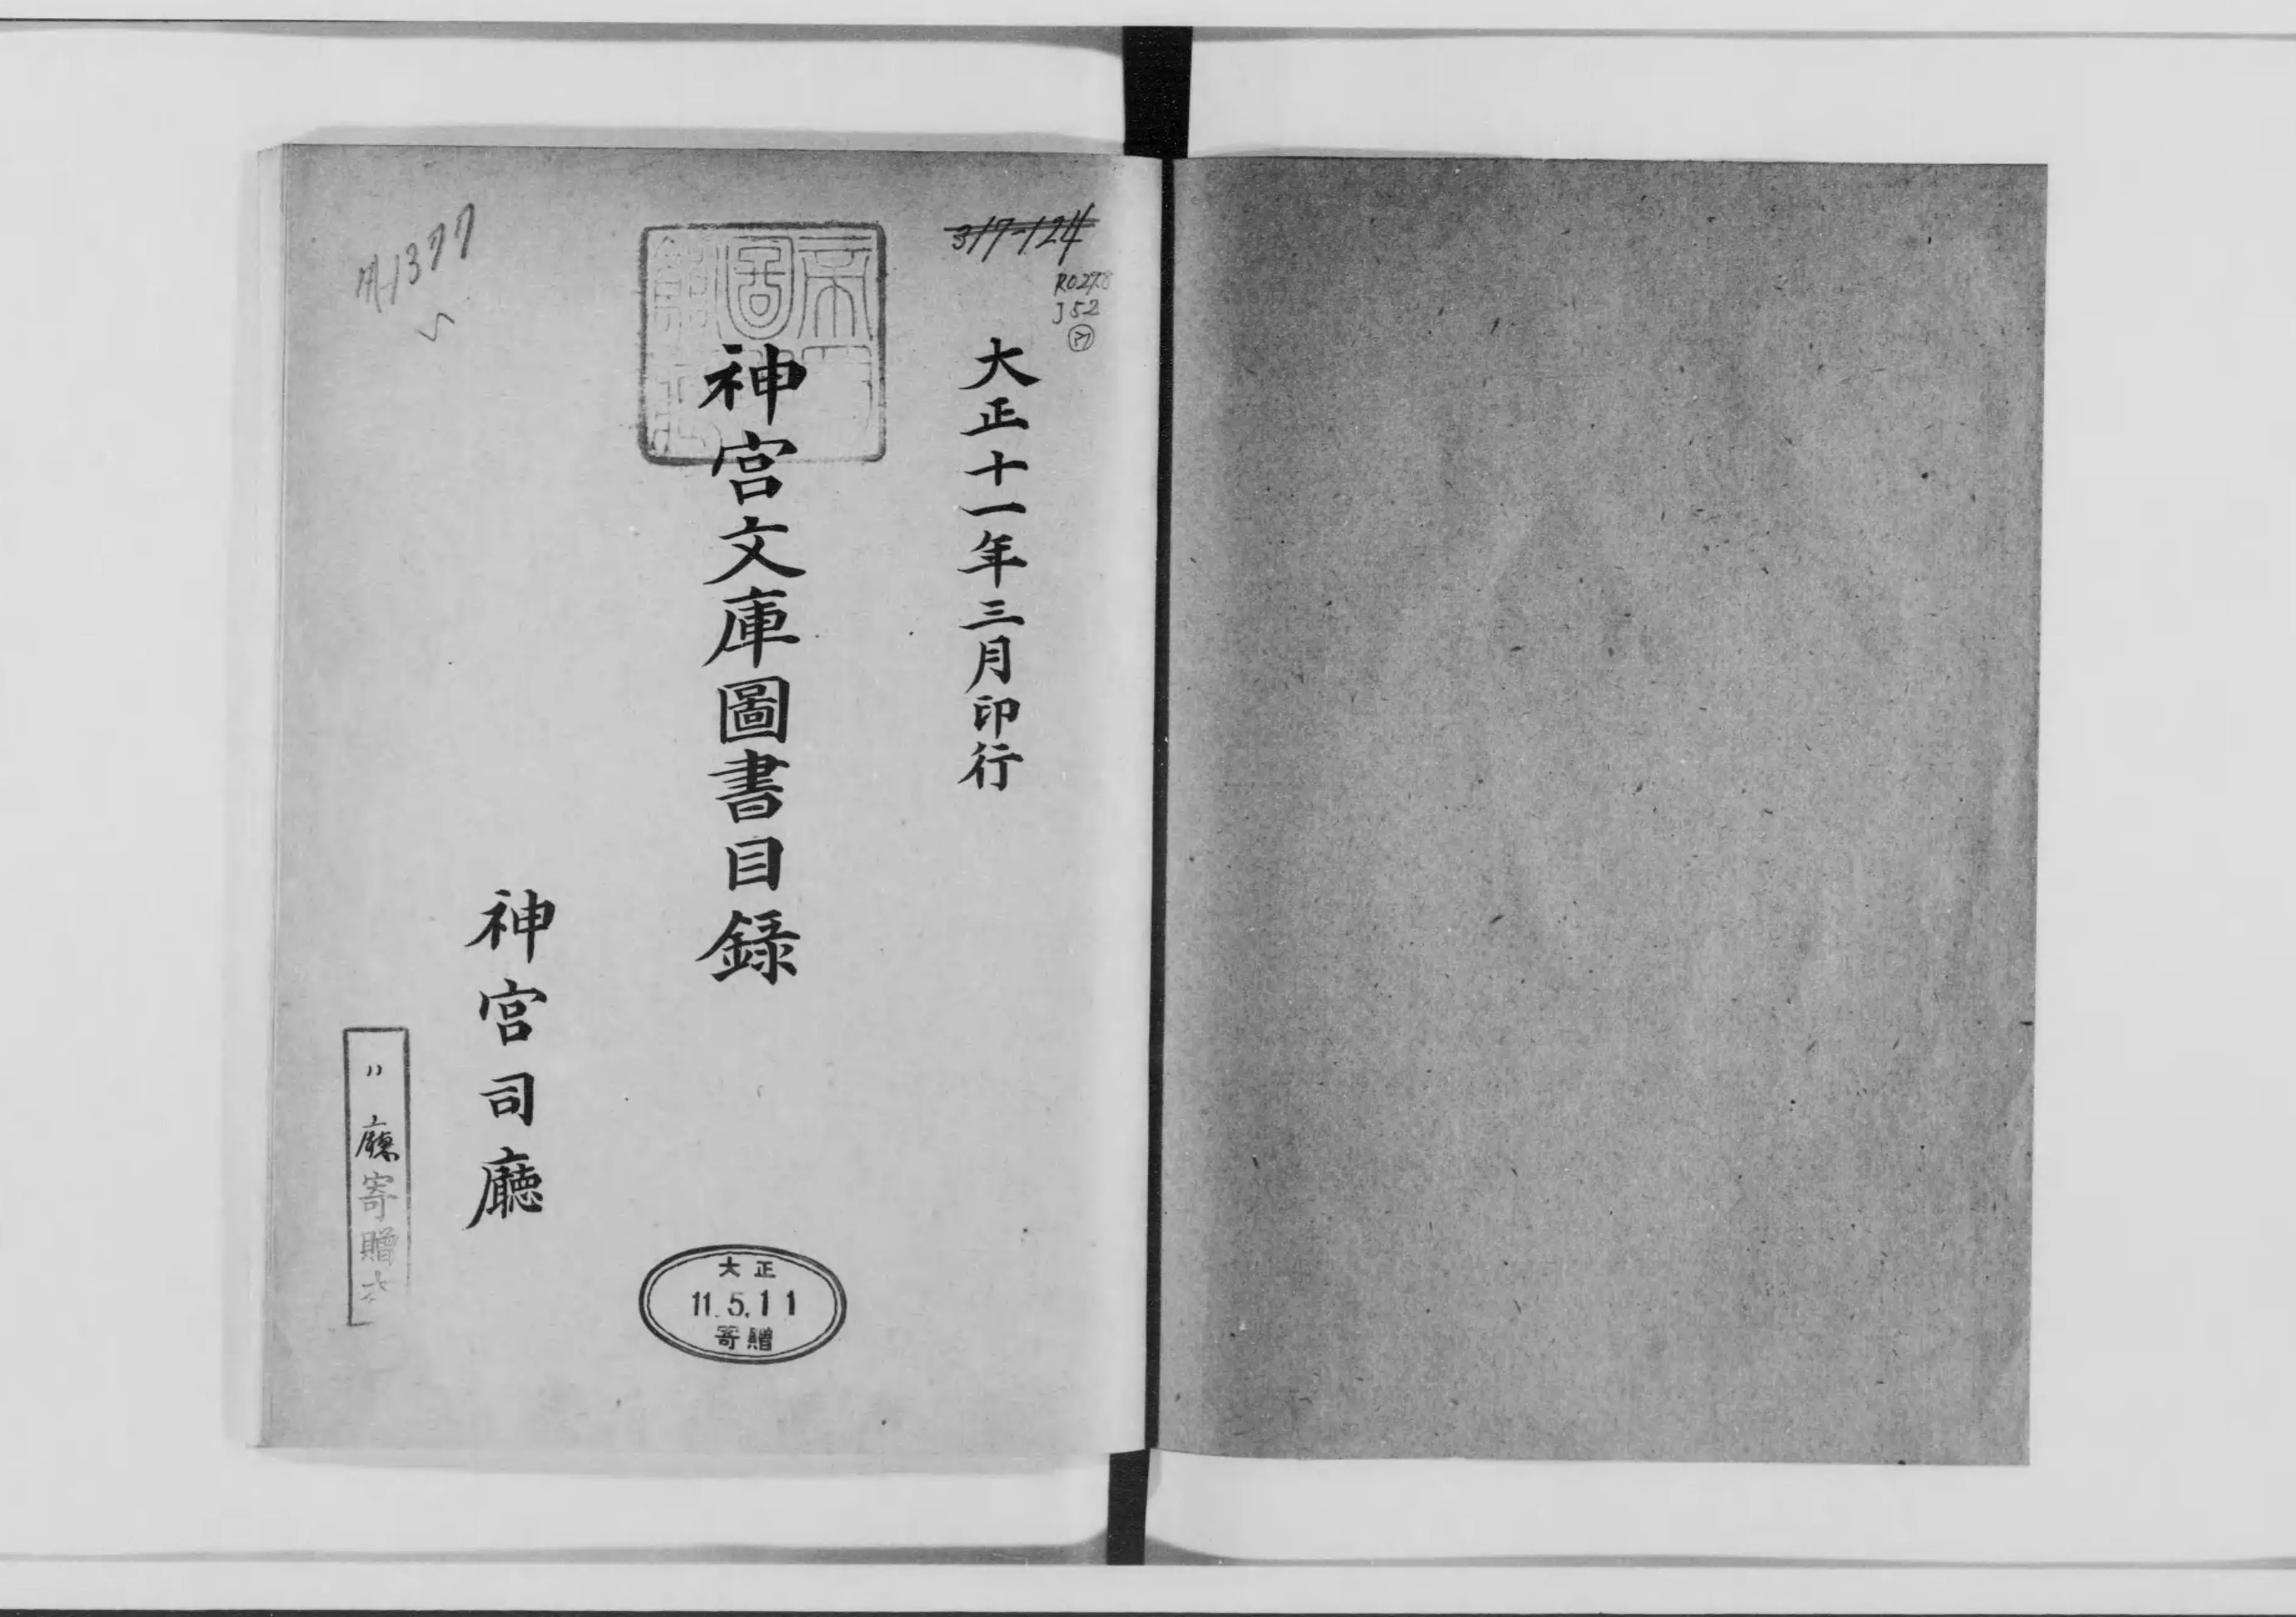 317-124
R027.8
J52
大正十一年三月印行
神宮文庫圖書目録
神宮司廳
〃廳寄贈本
大正
11.5.11
寄贈